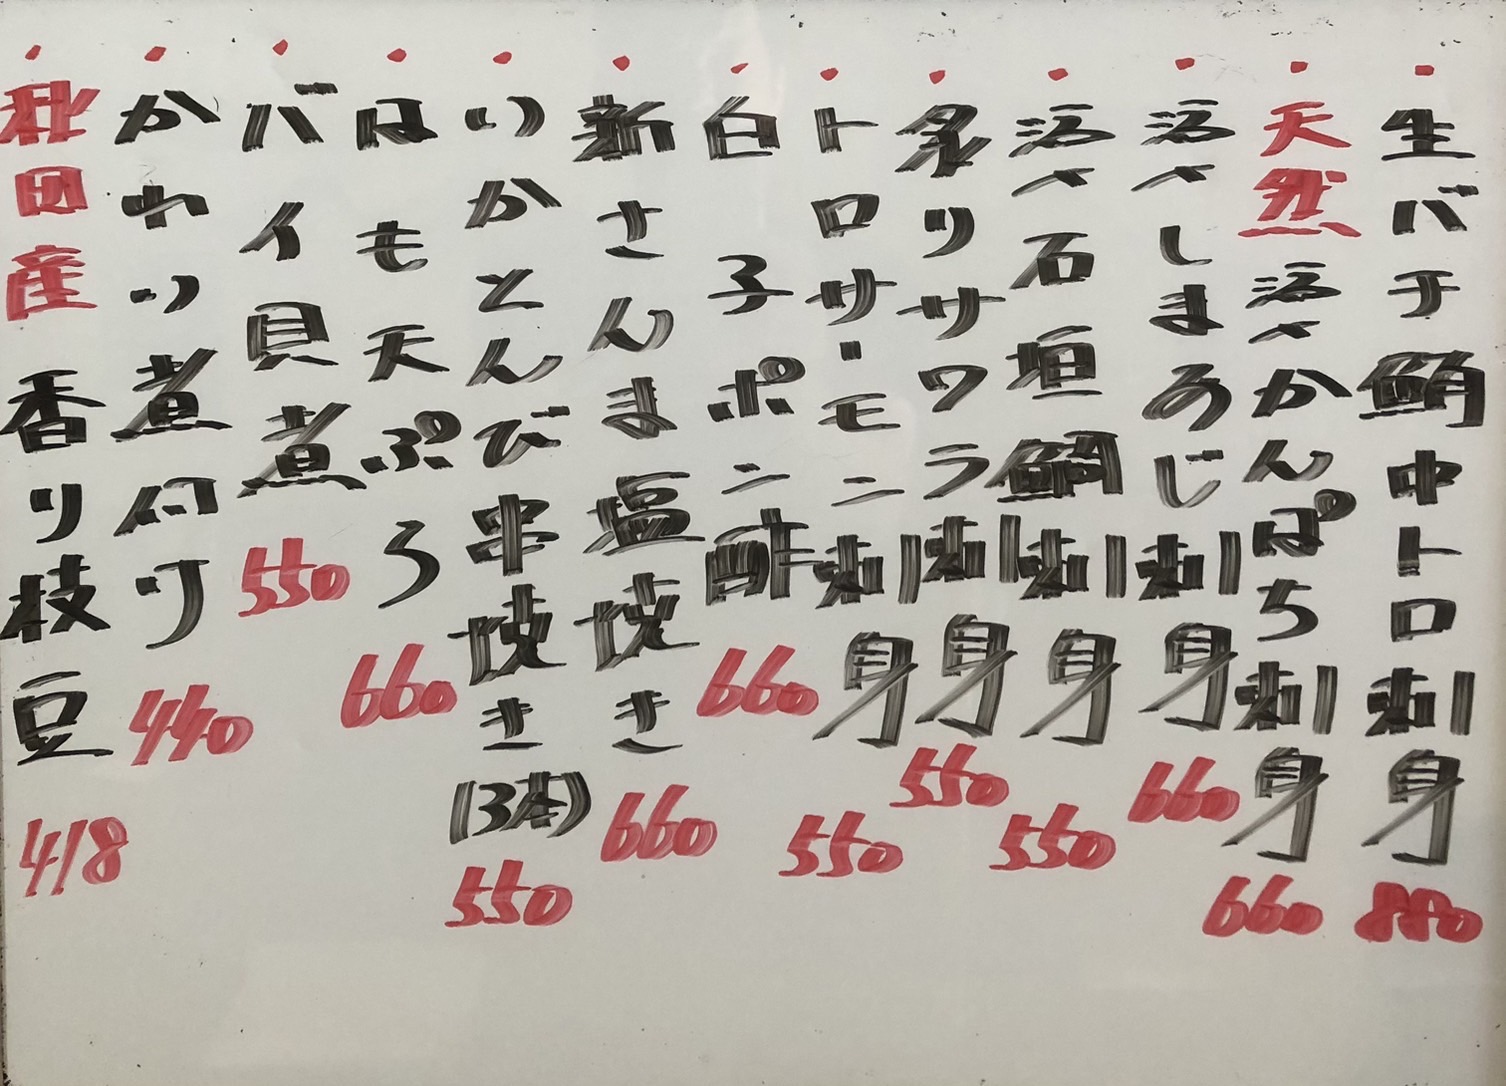 ・生バチ鮪中トロ刺身 880
・天然 活〆かんぱち刺身 660
・活〆しまあじ刺身 660
・活〆石垣鯛刺身 550
・炙りサワラ刺身 550
・トロサーモン刺身 550
・白子ポン酢 660
・新さんま塩焼き 660
・いかとんび串焼き(3本) 550
・はも天ぷら 660
・バイ貝煮 550
・かれい煮付け 440
・秋田産 香り枝豆 418